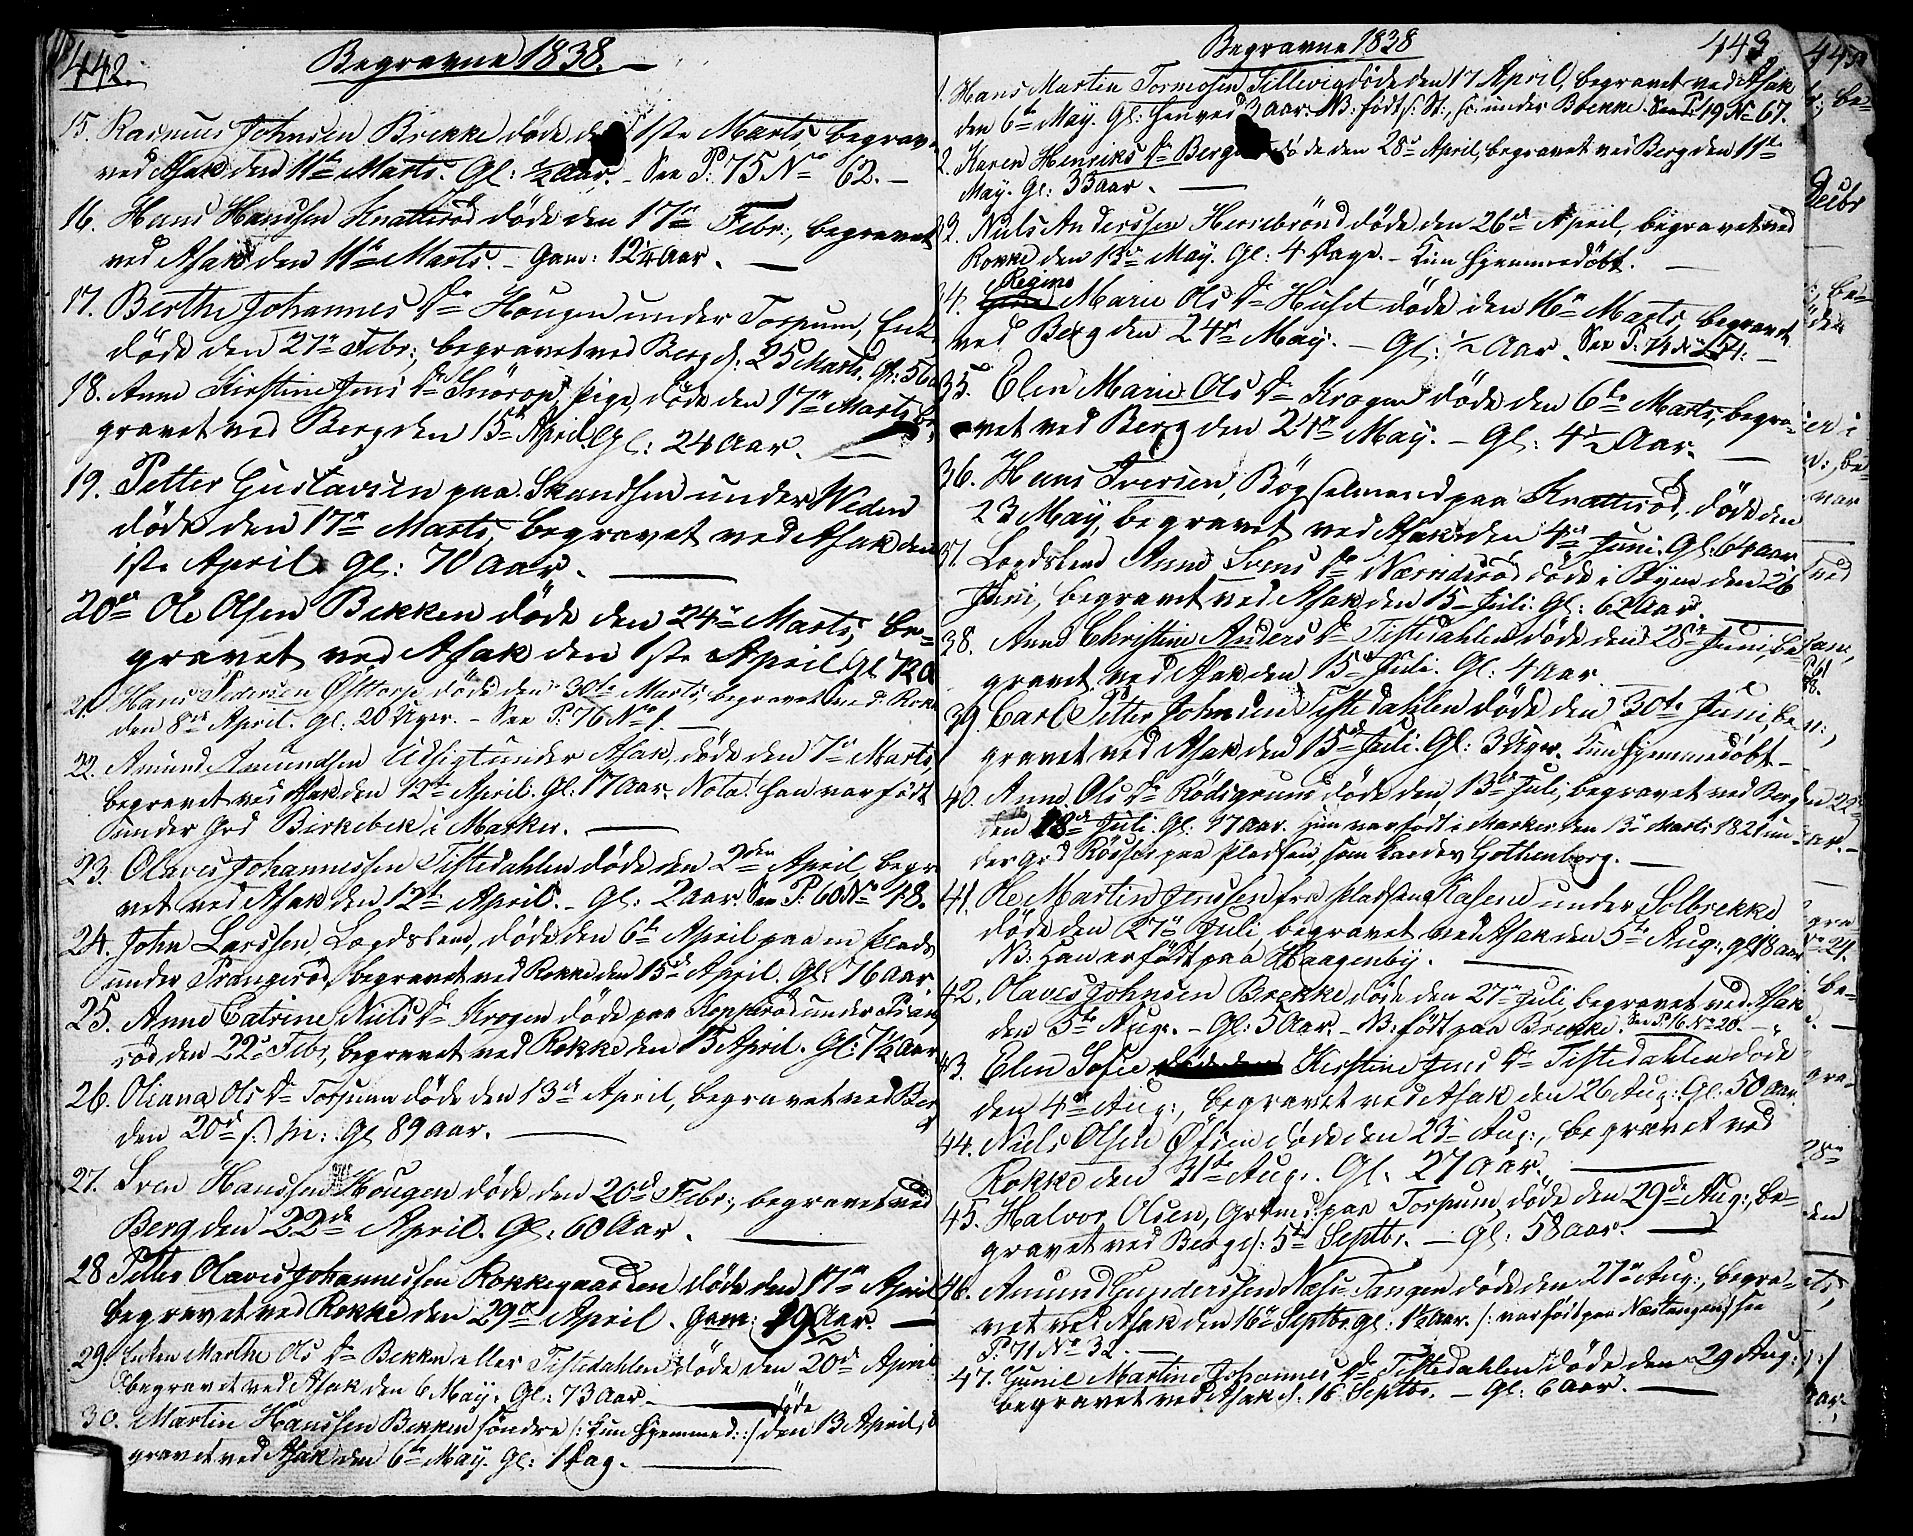 442.
Begravne 1838.
15. Rasmus Johnsen Brekke döde d 1ste Marts, begrav
ved Asak den 11te Marts. Gl: ½ Aar. - See P: 75 No 62. -
16. Hans Hanssen Knattisröd döde den 17de Febr:, begravet
ved Asak den 11te Marts. - Gam: 12¼ Aar. -
17. Berthe Johannes Dr Hougen under Torpum, Enk
döde den 27de Febr:, begravet ved Berg d: 25 Marts. Gl: 56
18. Anne Kirstine Jens Dr pige, döde den 17de Marts, be
gravet ved Berg den 15de April. Gl: 24 Aar. -
19. Petter Gustavsen paa Skandsen under Weden
döde den 17de Marts, begravet ved Asak den
1ste April. Gl: 70 Aar. -
20de Ole Olsen Bekken döde den 24de Marts, be-
gravet ved Asak den 1ste April Gl 72 a
21. Hans Pedersen Østtorp döde den 30te Marts, begravet ved Rokk
den 8de April. Gl. 20 Uger. - See P. 76 No 1.
22. Amund Amundsen Udsigt under Asak, döde den 7de Marts,
begravet ved Asak den 12te April. Gl: 17 Aar. Nota! han var født
under Grd Birkebek i Marker. -
23. Olaves Johannessen Tistedahlen döde den 2den April, begr
vet ved Asak den 12te April. - Gl: 2 Aar. See P. 60 No 48.
24. John Larssen, Logdslem, döde den 6te April paa en Plads
under Prangeröd, begravet ved Rokke den 15de April. Gl: 76 Aar.
25. Anne Catrine Niels Dr Krogen döde paa under Prang
röd den 22de Febr, begravet ved Rokke den 15 April. Gl: 7½ Aar
26. Oliana Ols Dr Torpum döde den 13de April, begravet ved Ber
den 20de s: M: Gl 89 Aar. -
27. Sven Hanssen Hougen döde den 20de Febr:, begravet ved
Berg den 22de April. Gl: 60 Aar. -
28 Petter Olaves Johannessen Rokkegaarden döde den 17de April
begravet ved Rokke den 29de April. Gam: 19 Aar. -
29 Enken Marthe Ols Dr Bekken eller Tistedahlen döde den 20de April
begravet ved Asak den 6 May. Gl: 73 Aar. -
30. Martin Hanssen Bekken söndre /: Kun hjemmed: :/ döde den 13 April, b
gravet ved Asak den 6te May. Gl: 1 Dag. -
Begravne 1838
443
1. Hans Martin Tormosen Tillevig döde den 17 April, begravet ved Asak
den 6te May. Gl: henved 3 Aar. NB: født s. St:, sc: under Brekke. See P: 19 No 67.
2. Karen Henriks Dr Berg döde den 28de April, begravet ved Berg den 11te
May. Gl: 33 Aar. -
32. Niels Anderssen Herrebrönd döde den 26de April, begravet ved
Rokke den 13de May. Gl: 4 Dage. - Kun hjemmedöbt. -
34. Regine Marie Ols Dr Huset döde den 16de Marts, begravet
ved Berg den 24de May. - Gl: ½ Aar. See P: 74 No 154. -
35. Elen Marie Ols Dr Krogen döde den 6te Marts, begra-
vet ved Berg den 24de May. - Gl: 4½ Aar. -
36. Hans Iversen, Bögselmand paa Knattisröd, döde den
23 May, begravet ved Asak den 4de Juni. Gl: 64 Aar
37. Logdslem Anne Svens Dr döde i Byen den 26
Juni, begravet ved Asak den 15de Juli. Gl: 62 Aar. -
38. Anne Christine Anders Dr Tistedahlen döde den 28de Juni, be
gravet ved Asak den 15de Juli. Gl: 4 Aar
39. Carl Petter Johnsen Tistedahlen döde den 30te Juni be
gravet ved Asak den 15de Juli. Gl: 3 Uger. Kun hjemmedöbt -
40. Anne Ols Dr Rödsgrund döde den 13de Juli, begravet ved Berg
den 18de Juli. Gl: 17 Aar. Hun var født i Marker den 13de Marts 1821 un
der Grd paa Pladsen, som kaldes Gothenborg. -
41. Ole Martin Jenssen fra Pladsen Kasene under Solbrekke
döde den 27de Juli, begravet ved Asak den 5te Aug: Gl: 18 Aar
NB: Han er født paa Haagenby. -
42. Olaves Johnsen Brekke döde den 27de Juli, begravet ved Asak
den 5te Aug. - Gl: 5 Aar. - NB: født paa Brekke. See P. 16 No 20. -
43. Elen Sofie Kirstine Jens Dr Tistedahlen döde
den 4de Aug:, begravet ved Asak den 26 Aug: Gl: 50 Aar.
44. Niels Olsen Øfsen döde den 23de Aug:, begravet ved
Rokke den 31te Aug. Gl: 27 Aar. -
45. Halvor Olsen, paa Torpum, döde den 29de Aug:, be-
gravet ved Berg d: 5te Septbr. - Gl: 58 Aar. -
46. Amund Gunderssen Næs-Tangen döde den 27de Aug:, begra-
vet ved Asak den 16de Septbr, Gl: 1½ Aar. /: var født paa Næstangen:/ See
P: 71 No 32. -
47. Gunel Martine Johannes Dr Tistedahlen döde den 29 Aug:
begravet ved Asak d. 16 Septbr. - Gl: 6 Aar. -